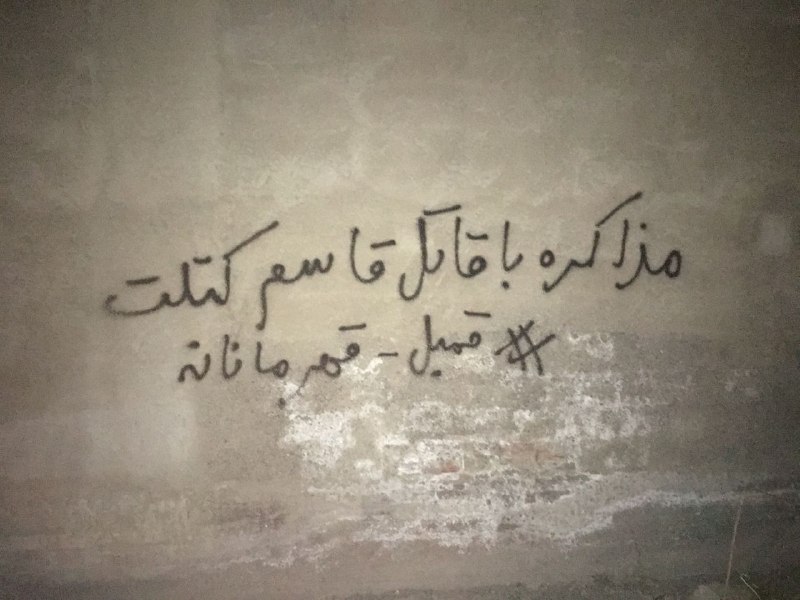 مذاکره با قاتل قاسم کتلت
#قمیل-قهرمانانه